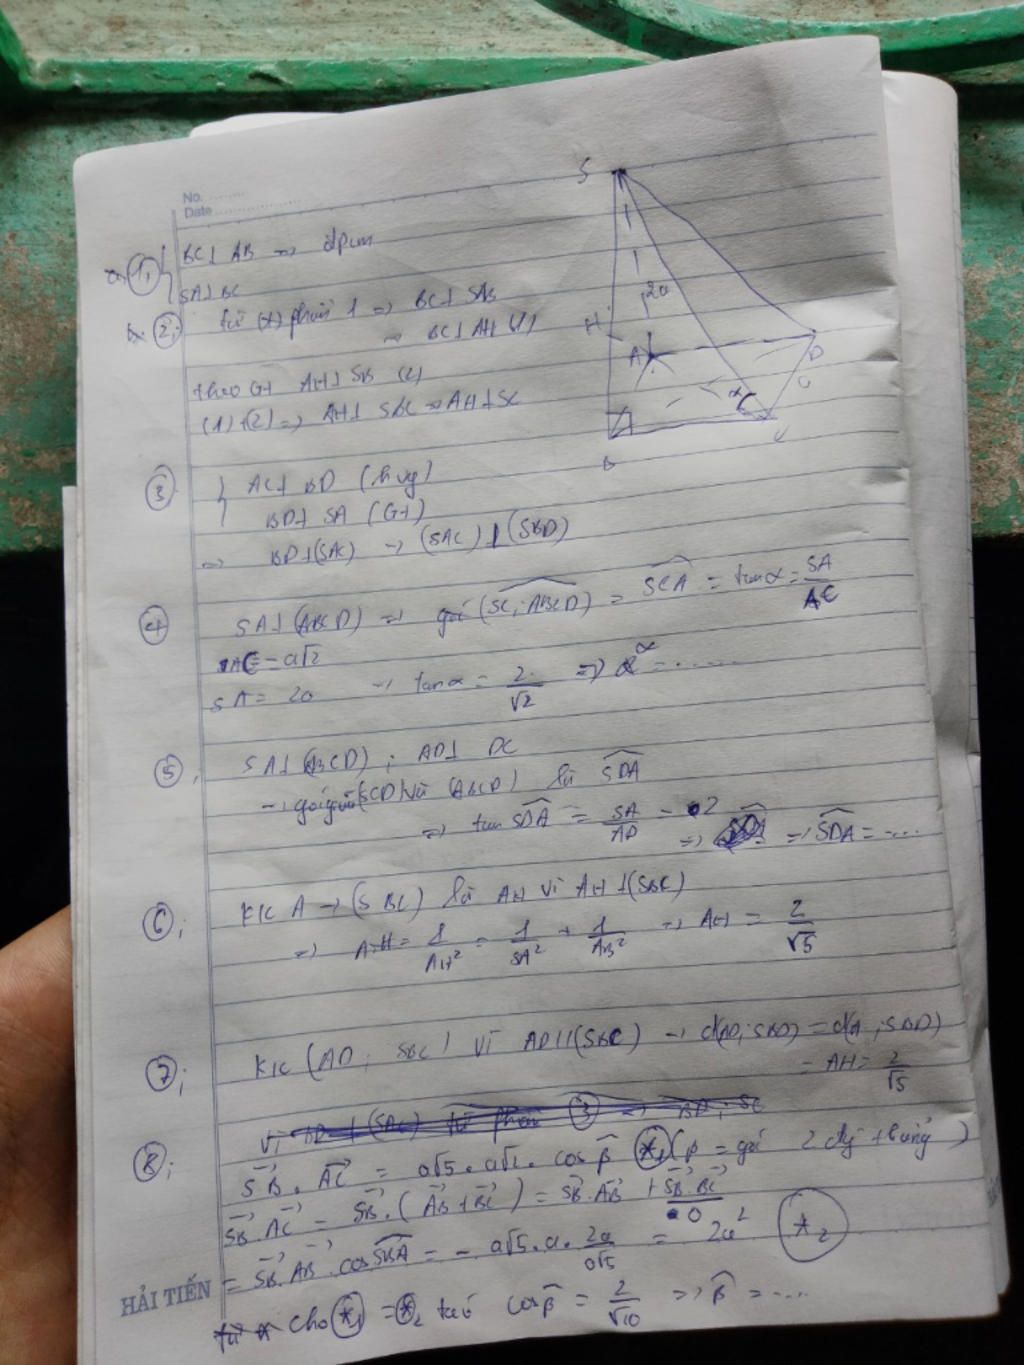 No. ........
Date ................
1, BC⊥ AB → đpcm
SA⊥BC
2, từ (*) phần 1 => BC⊥ SAB
→ BC⊥ AH (1)
theo Gt AH⊥ SB (2)
(1)+(2) => AH⊥ SBC => AH⊥SC
S
2a
H
A
D
α
C
B
3 AC⊥ BD (h vg)
BD⊥ SA (Gt)
=> BD⊥(SAC) → (SAC)⊥(SBD)
4 SA⊥(ABCD) => góc (SC; ABCD) = SCA = tanα = SA/AC
AC = a√2
SA = 2a → tanα = 2/√2 => α = ......
5, SA⊥(ABCD) ; AD⊥ DC
→ góc giữa (SCD) và (ABCD) là SDA
=> tan SDA = SA/AD = 2 => SDA = ....
6; K/c A → (SBC) là AH vì AH⊥(SBC)
=> AH = 1/AH² = 1/SA² + 1/AB² → AH = 2/√5
7; K/c (AD; SBC) vì AD//(SBC) → d(AD; SBD) = d(A; SBD)
= AH = 2/√5
Vì BD⊥(SAC) từ phần 3 => BD; SC
8; SB. AC = a√5. a√2. cos β *1 (β = góc 2 đg thẳng)
SB. AC = SB. (AB + BC) = SB. AB + SB. BC
0
= SB. AB cos SBA = - a√5. a. 2a/a√5 = 2a² *2
HẢI TIẾN
cho *1 = *2 ta có cos β = 2/√10 => β = ....